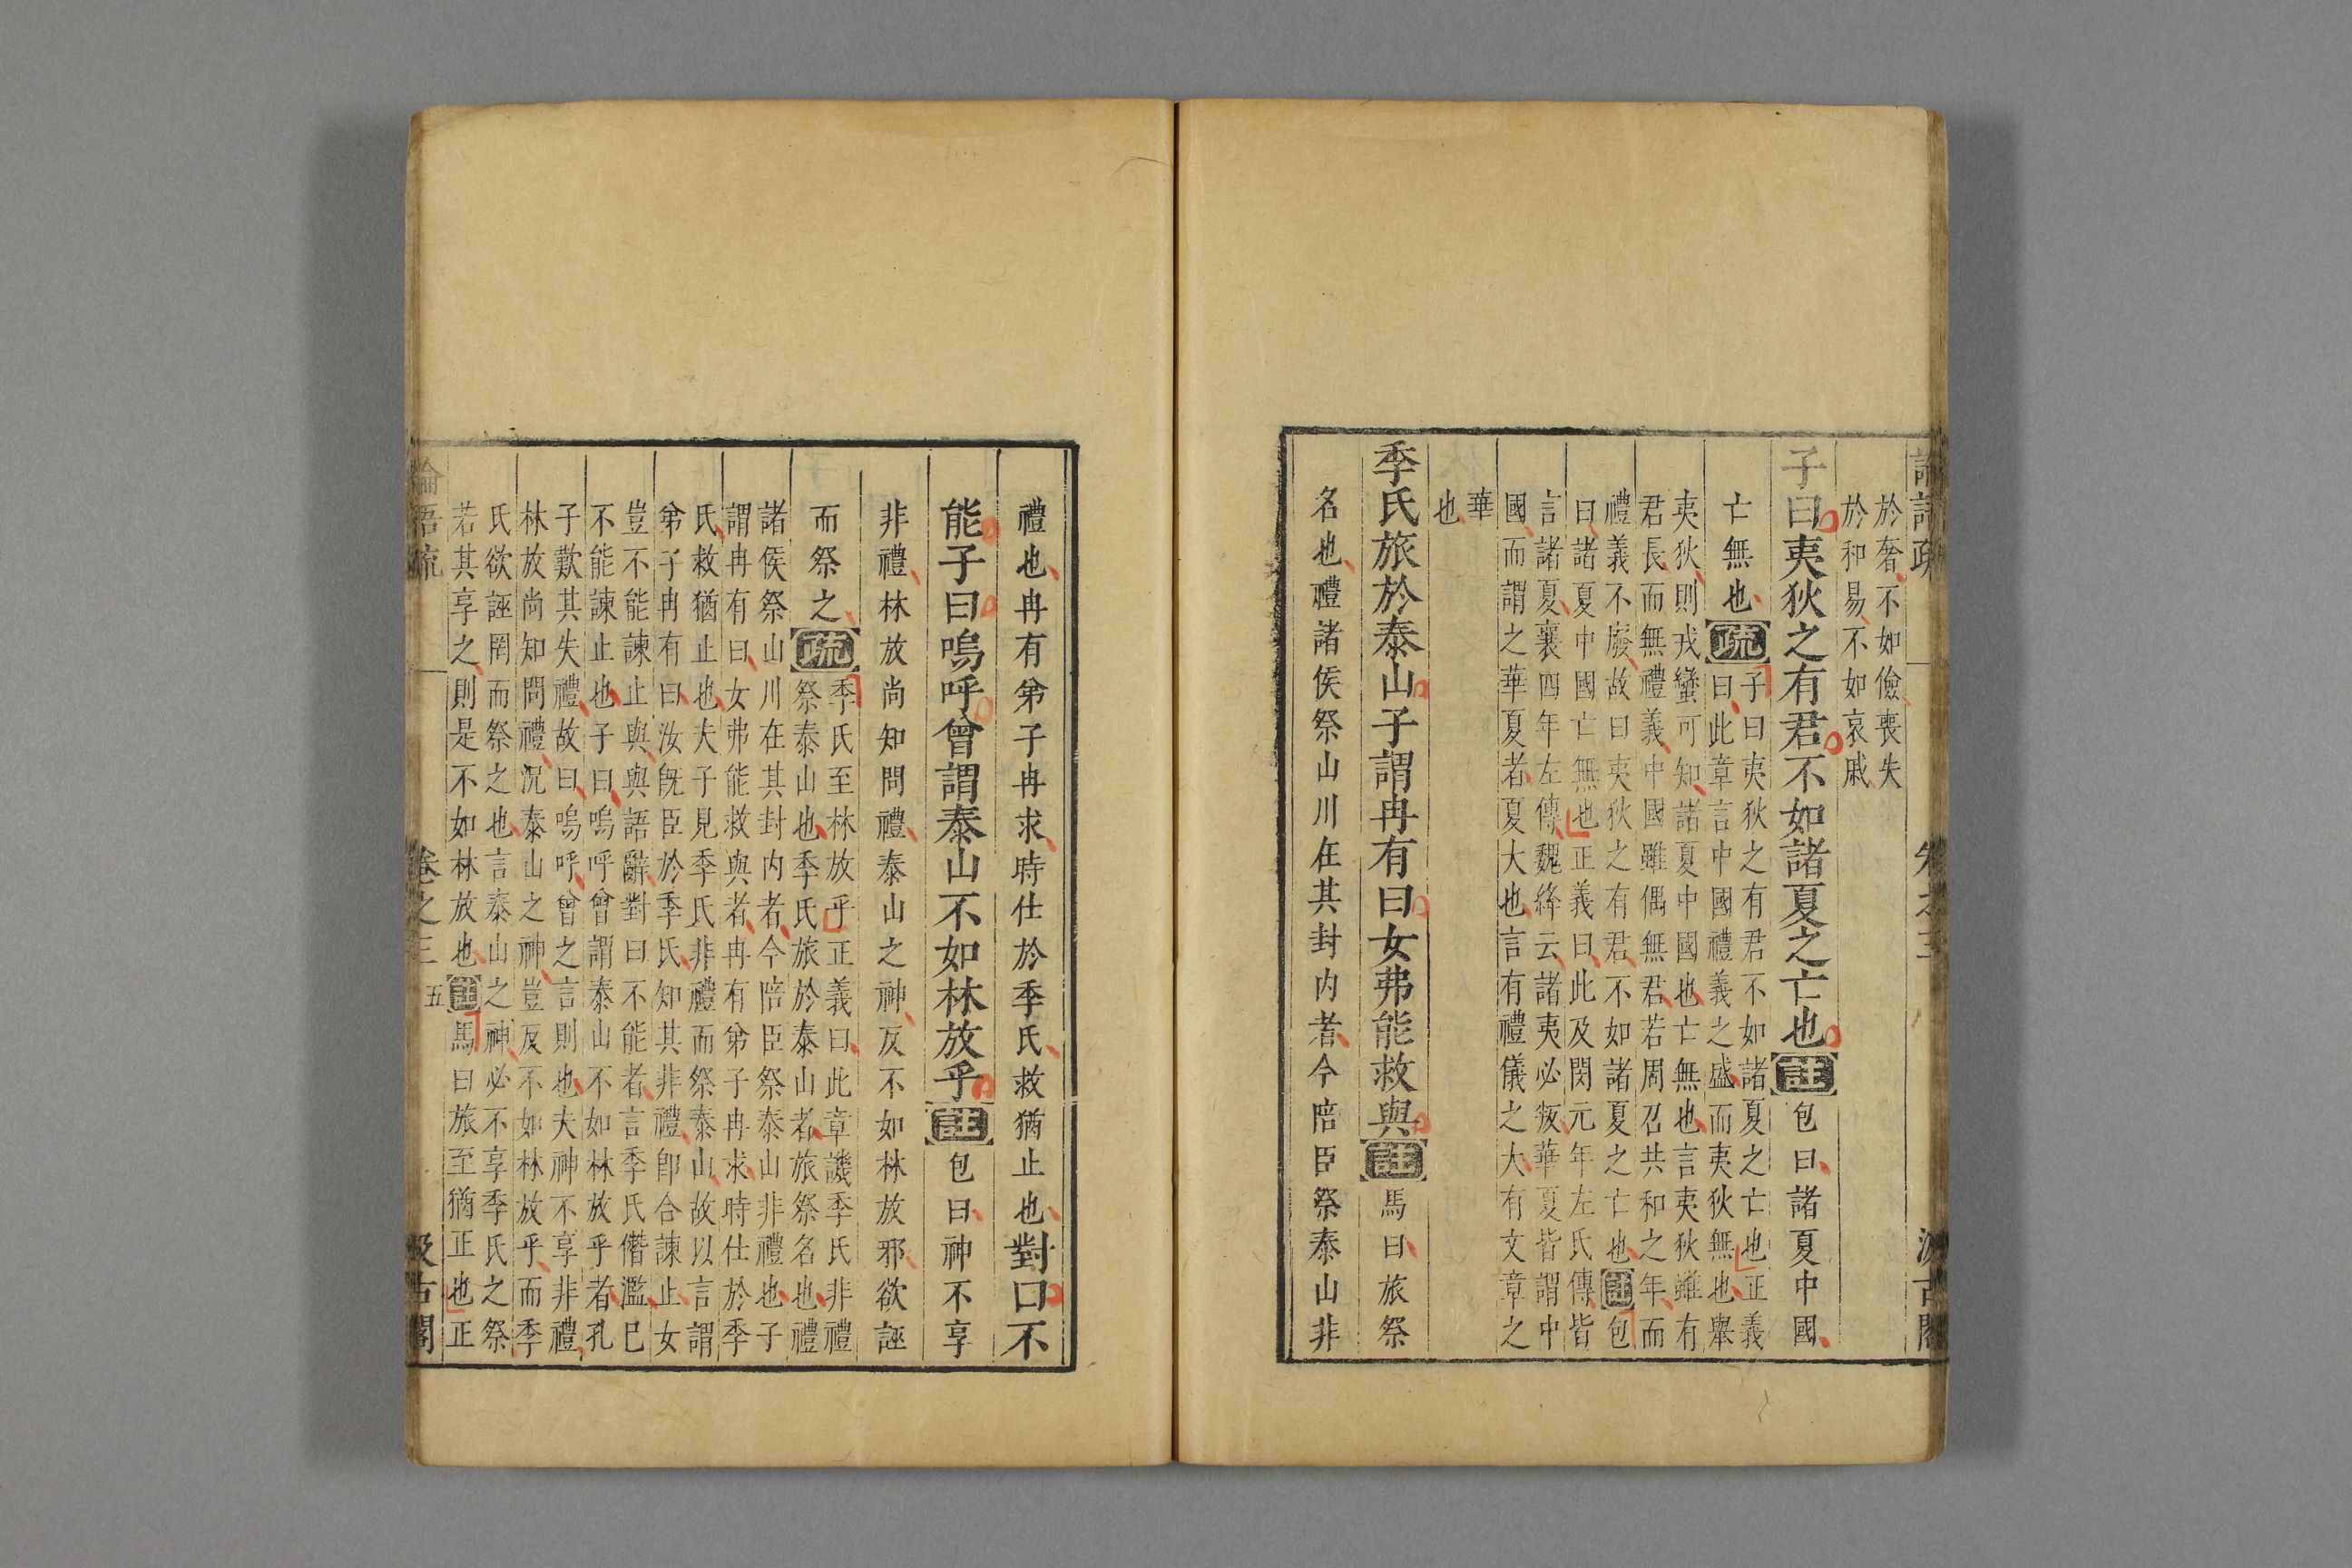 於奢不如儉喪失
於和易不如哀戚
子曰夷狄之有君不如諸夏之亡也註包曰諸夏中國
亡無也疏
子曰夷狄之有君不如諸夏之亡也正義
曰此章言中國禮義之盛而夷狄無也舉
夷狄則戎蠻可知諸夏中國也亡無也言夷狄雖有
君長而無禮義中國雖偶無君若周召共和之年而
禮義不廢故曰夷狄之有君不如諸夏之亡也註包
曰諸夏中國亡無也正義曰此及閔元年左氏傳皆
言諸夏襄四年左傳魏絳云諸夷必叛華夏皆謂中
國而謂之華夏者夏大也言有禮儀之大有文章之
華
也
季氏旅於泰山子謂冉有曰女弗能救與註馬曰旅祭
名也禮諸侯祭山川在其封内者今陪臣祭泰山非
禮也冉有弟子冉求時仕於季氏救猶止也對曰不
能子曰嗚呼曾謂泰山不如林放乎註包曰神不享
非禮林放尚知問禮泰山之神反不如林放邪欲誣
而祭之疏
季氏至林放乎正義曰此章譏季氏非禮
祭泰山也季氏旅於泰山者旅祭名也禮
諸侯祭山川在其封内者今陪臣祭泰山非禮也子
謂冉有曰女弗能救與者冉有弟子冉求時仕於季
氏救猶止也夫子見季氏非禮而祭泰山故以言謂
弟子冉有曰汝旣臣於季氏知其非禮卽合諫止女
豈不能諫止與與語辭對曰不能者言季氏僭濫已
不能諫止也子曰嗚呼曾謂泰山不如林放乎者孔
子歎其失禮故曰嗚呼曾之言則也夫神不享非禮
林放尚知問禮況泰山之神豈反不如林放乎而季
氏欲誣罔而祭之也言泰山之神必不享季氏之祭
若其享之則是不如林放也註馬曰旅至猶正也正
論語疏
卷之三
五
汲古閣